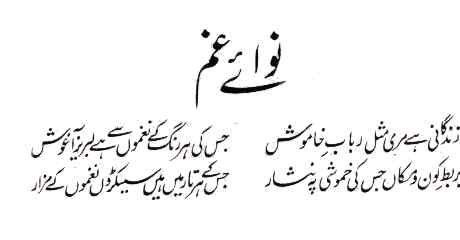 نوائے غم
زندگانی ہے مری مثل ربابِ خاموش جس کی ہر رنگ کے نغموں سے ہے لبریز آغوش
بربطِ کون و مکاں جس کی خموشی پہ نثار جس کے ہر تار میں ہیں سینکڑوں نغموں کے مزار